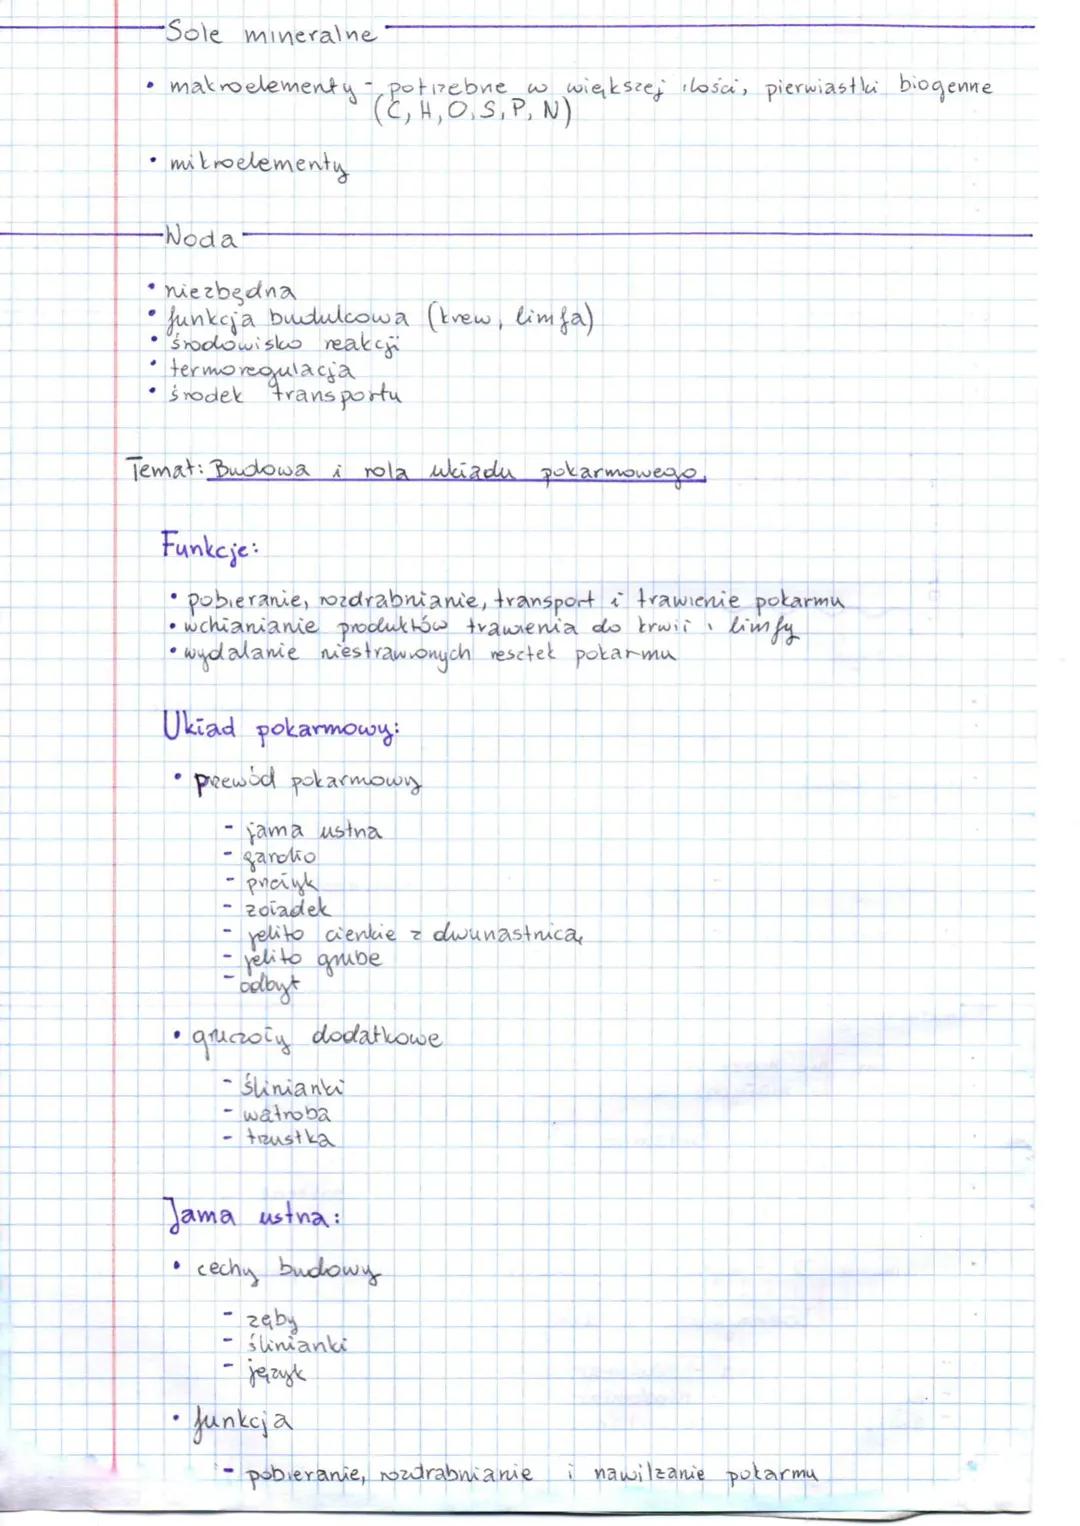 Sole mineralne
• makroelementy - potrzebne w większej ilości, pierwiastki biogenne
(C, H, O, S, P, N)
• mikroelementy
Woda
• niezbędna
• funkcja budulcowa (krew, limfa)
• środowisko reakcji
• termoregulacja
• środek transportu
Temat: Budowa i rola układu pokarmowego.
Funkcje:
• pobieranie, rozdrabnianie, transport i trawienie pokarmu
• wchłanianie produktów trawienia do krwii i limfy
• wydalanie niestrawionych resztek pokarmu
Układ pokarmowy:
• przewód pokarmowy
- jama ustna
- gardło
- przełyk
- żołądek
- jelito cienkie z dwunastnicą
- jelito grube
- odbyt
• gruczoły dodatkowe
- ślinianki
- wątroba
- trzustka
Jama ustna:
• cechy budowy
- zęby
- ślinianki
- język
• funkcja
- pobieranie, rozdrabnianie i nawilżanie pokarmu